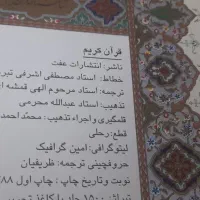 قرآن کریم
ناشر: انتشارات عفت
خطاط: استاد مصطفی اشرفی
ترجمه: استاد مرحوم الهی قمشه
تذهیب: استاد عبدالله محرمی
قلمگیری و اجراء تذهیب: محمد احمد
قطع: رحلی
لیتوگرافی: امین گرافیک
حروفچینی ترجمه: ظریفیان
نوبت و تاریخ چاپ: چاپ اول